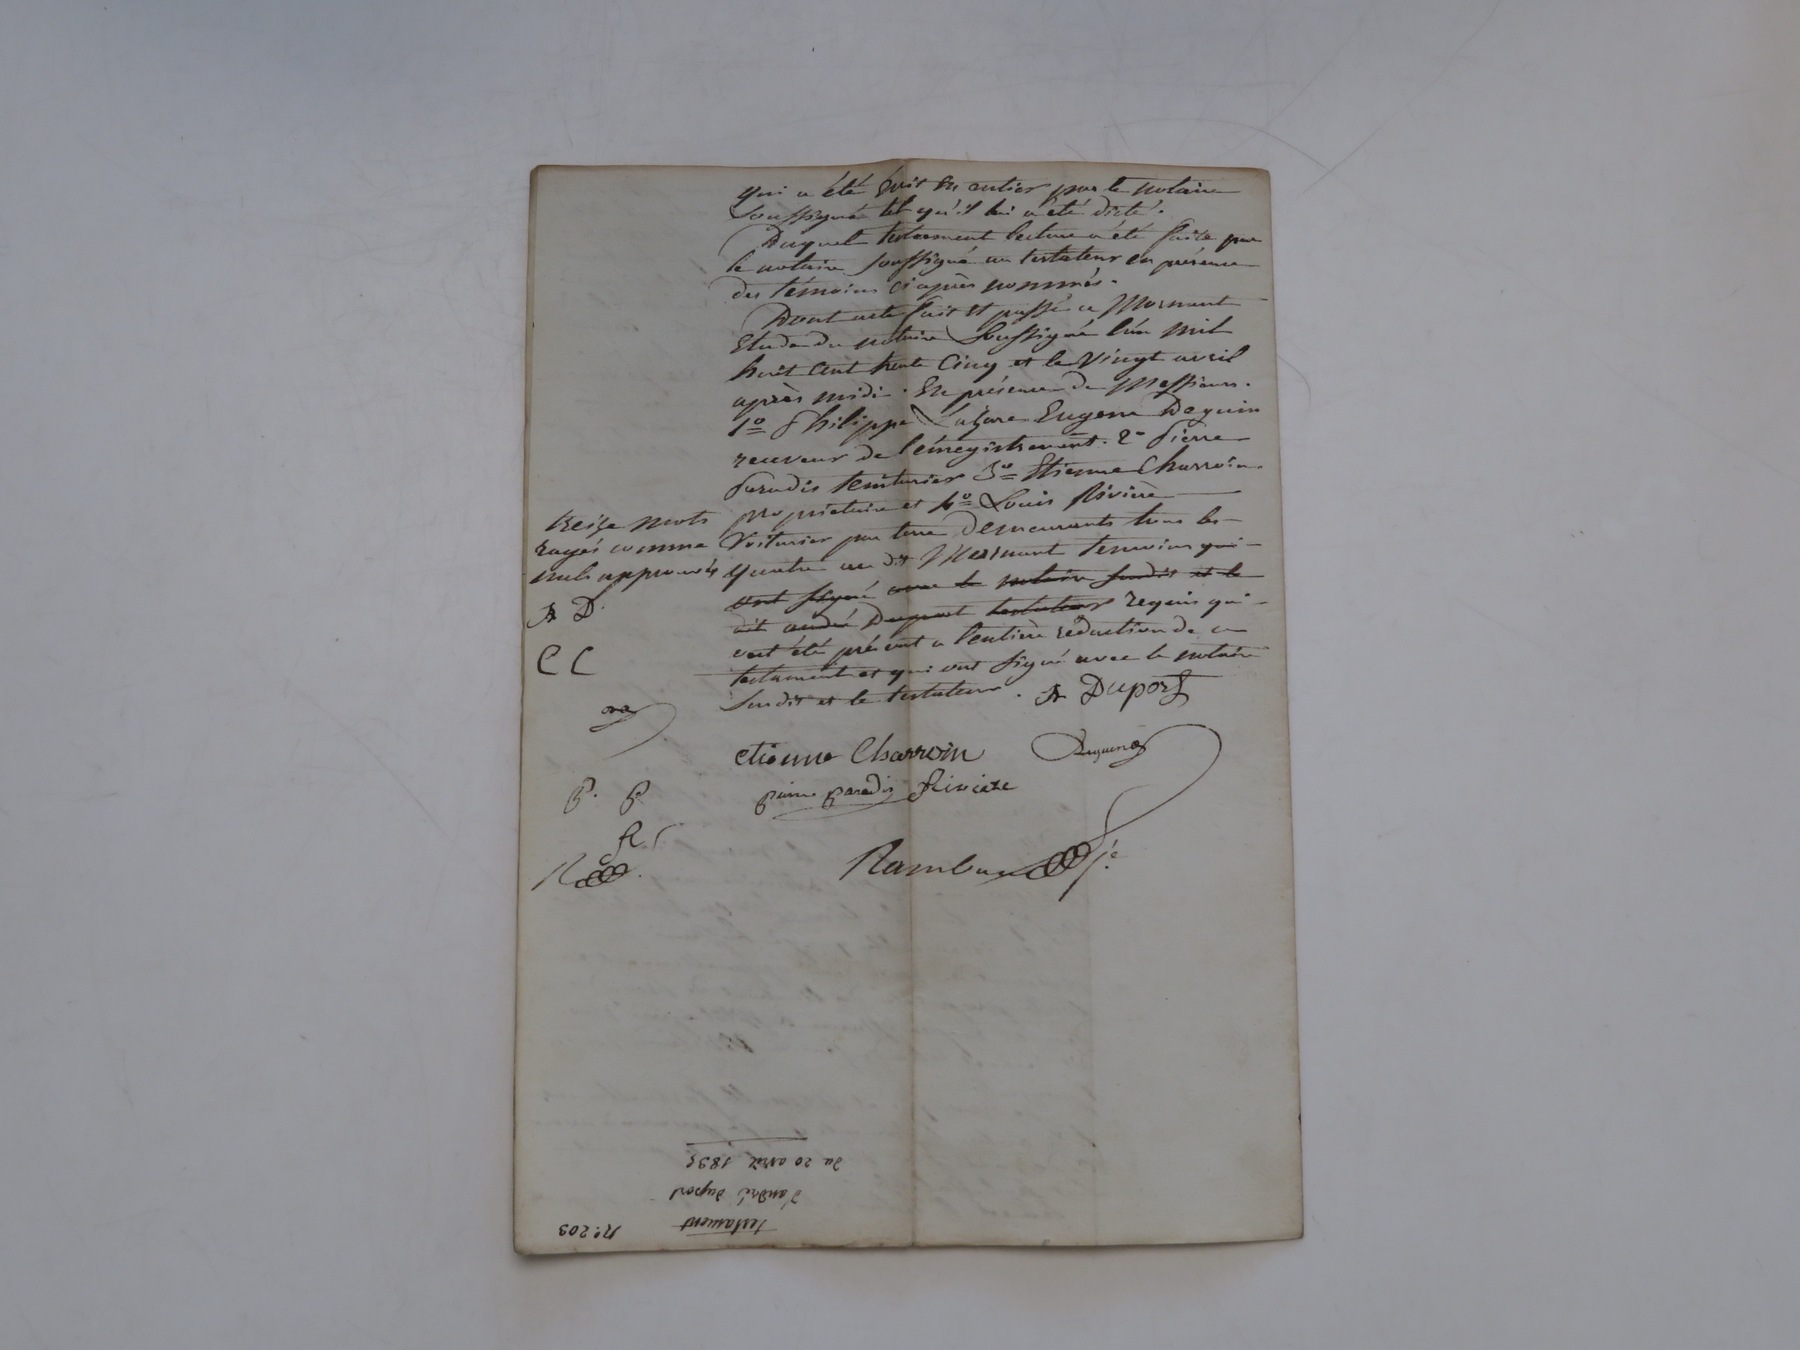 qui a été écrit en entier par le notaire
soussigné tel qu'il lui a été dicté.
Duquel testament lecture a été faite par
le notaire soussigné au testateur en présence
des témoins ci après nommés.
Dont acte fait et passé a Mornant
Etude du notaire soussigné l'an mil
huit cent trente cinq et le vingt avril
après midi. En présence de Messieurs.
1o Philippe Lazare Eugene Daguin
receveur de l'énregistrement. 2o Pierre
Paradis teinturier 3o Etienne Charvoin
propriétaire et 4o Louis Rivière
Voiturier par terre demeurants tous les
quatre au dit Mornant temoins qui
ont signé avec le notaire susdit et le
dit andré Duport testateur requis qui
ont été présent a l'entière rédaction de ce
testament et qui ont signé avec le notaire
susdit et le testateur. A Duport
treize mots
rayés comme
nuls approuvés
A D.
E C
etienne Charvoin Daguin
P. P.
pierre paradis Rivière
R
R
N° 203
testament
d'andré duport
du 20 avril 1835